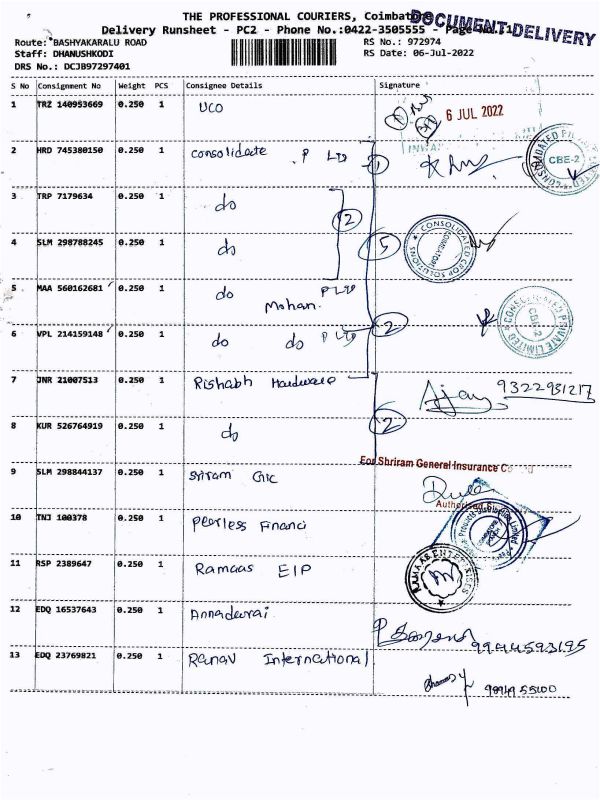 THE PROFESSIONAL COURIERS, Coimbatore
DOCUMENT DELIVERY
Delivery Runsheet - PC2 - Phone No.:0422-3505555 - Page No.
Route: BASHYAKARALU ROAD
RS No.: 972974
Staff: DHANUSHKODI
RS Date: 06-Jul-2022
DRS No.: DCJB97297401
S No Consignment No Weight PCS Consignee Details Signature
1 TRZ 140953669 0.250 1 UCO
6 JUL 2022
2 HRD 745380150 0.250 1 consolidate P Ltd 1
CONSOLIDATED PRIVATE LIMITED CBE-2
3 TRP 7179634 0.250 1 do
2
4 SLM 298788245 0.250 1 do 5
CONSOLIDATED CROP SOLUTIONS
5 MAA 560162681 0.250 1 do P Ltd
Mohan
CBE-2 PRIVATE LIMITED
6 VPL 214159148 0.250 1 do do P Ltd 2
7 JNR 21007513 0.250 1 Rishabh Hardware Ajay 9322931217
8 KUR 526764919 0.250 1 do 2
For Shriram General Insurance Co
9 SLM 298844137 0.250 1 Sriram GIC
Authorised
10 TNJ 100378 0.250 1 Peerless Financi
11 RSP 2389647 0.250 1 Ramaas EIP
RAMAAS ENTERPRISES
12 EDQ 16537643 0.250 1 Annadurai
9944593195
13 EDQ 23769821 0.250 1 Ranav International